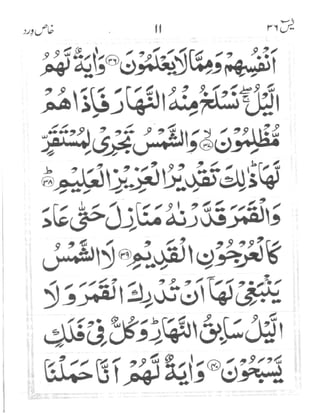 یٰسٓ ۳۶ ۱۱ خاص ورد
اَنْفُسِهِمْ وَمِمَّا لَا يَعْلَمُوْنَ ۝۳۶ وَاٰيَةٌ لَّهُمُ
الَّيْلُ ۖۚ نَسْلَخُ مِنْهُ النَّهَارَ فَاِذَا هُمْ
مُّظْلِمُوْنَ ۝۳۷ۙ وَالشَّمْسُ تَجْرِيْ لِمُسْتَقَرٍّ
لَّهَا ؕ ذٰلِكَ تَقْدِيْرُ الْعَزِيْزِ الْعَلِيْمِ ؕ۝۳۸
وَالْقَمَرَ قَدَّرْنٰهُ مَنَازِلَ حَتّٰى عَادَ
كَالْعُرْجُوْنِ الْقَدِيْمِ ۝۳۹ لَا الشَّمْسُ
يَنْۢبَغِيْ لَهَاۤ اَنْ تُدْرِكَ الْقَمَرَ وَلَا
الَّيْلُ سَابِقُ النَّهَارِ ؕ وَكُلٌّ فِيْ فَلَكٍ
يَّسْبَحُوْنَ ۝۴۰ وَاٰيَةٌ لَّهُمْ اَنَّا حَمَلْنَا